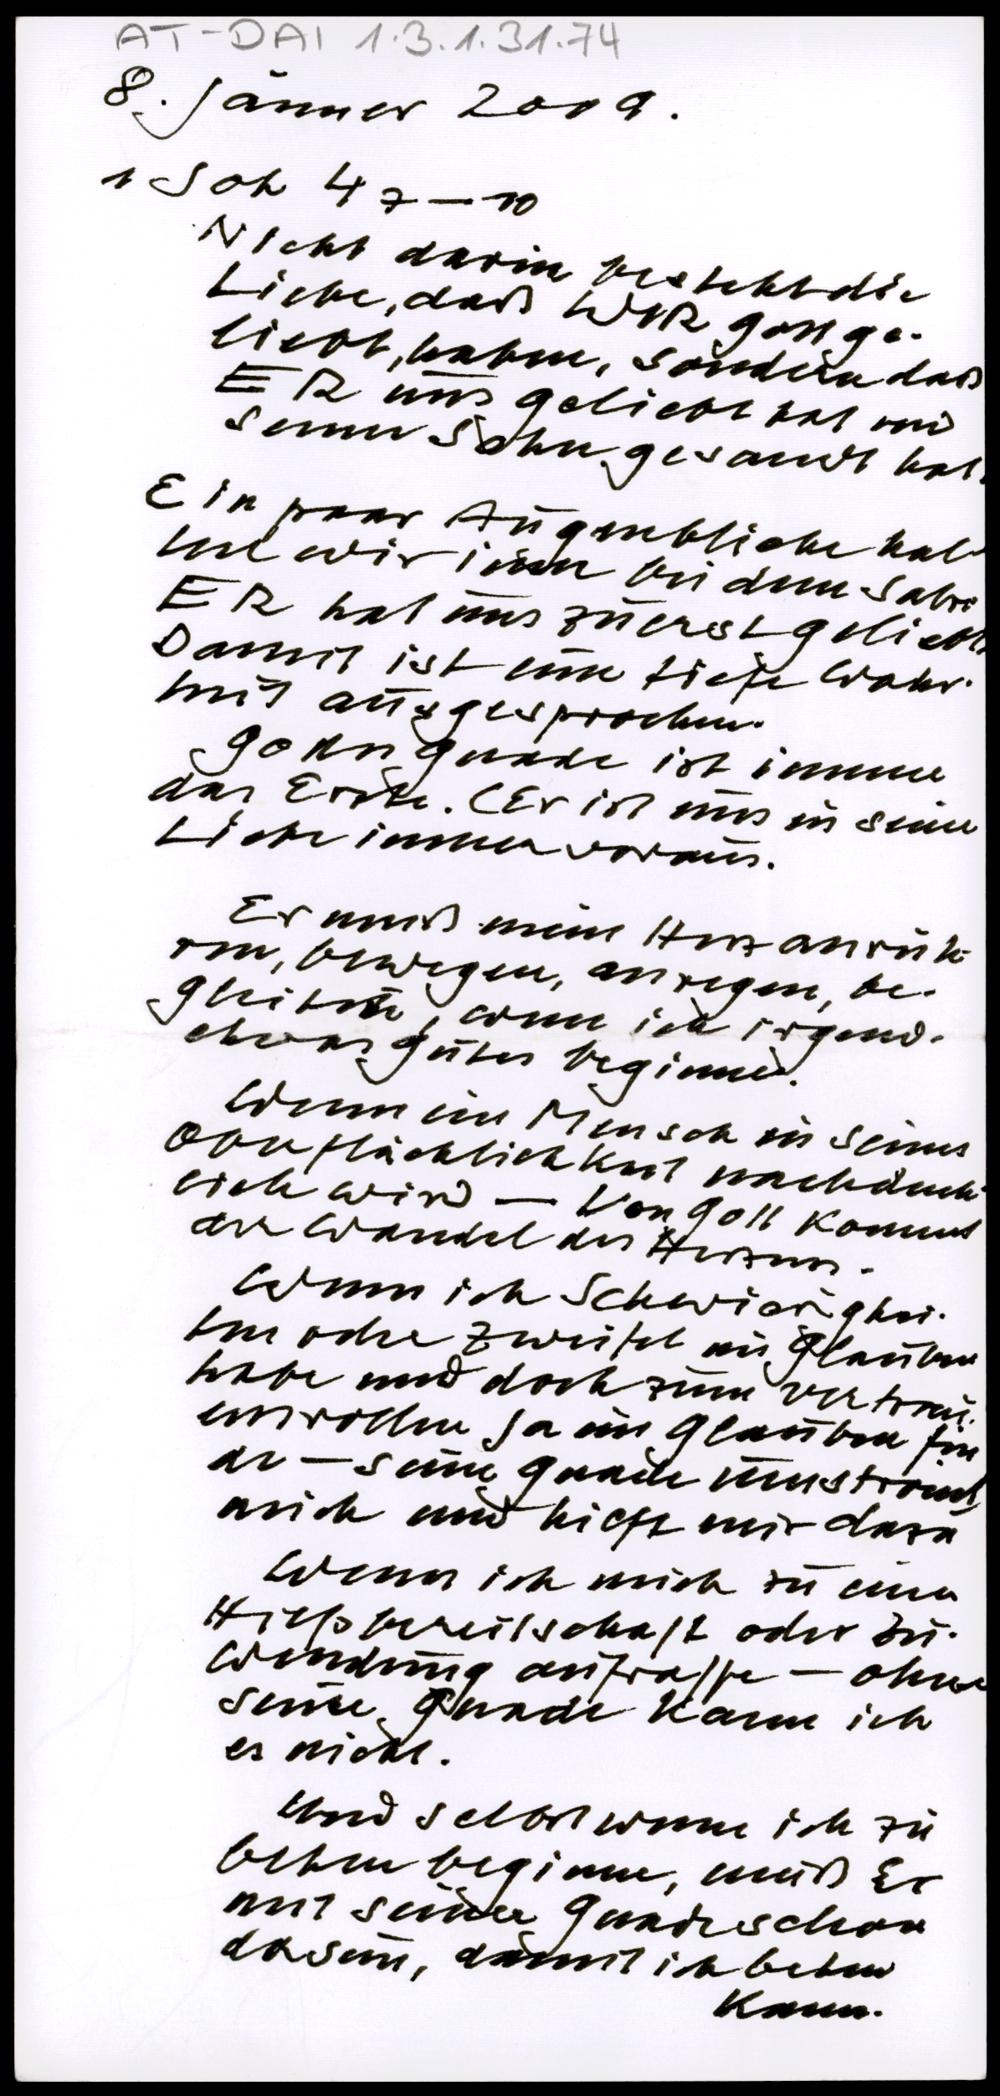 AT-DAI 1.3.1.31.74
8. Jänner 2009.
1 Joh 4 7-10
Nicht darin besteht die
Liebe, daß WIR Gott ge-
liebt, haben, sondern daß
ER uns geliebt hat und
seinen Sohn gesandt hat.
Ein paar Augenblicke hal-
ten wir inne bei dem Satz:
ER hat uns zuerst geliebt.
Damit ist eine tiefe Wahr-
heit ausgesprochen.
Gottes Gnade ist immer
das Erste. (Er ist uns in seiner
Liebe immer voraus.
Er muß mein Herz anrüh-
ren, bewegen, anregen, be-
gleiten, wenn ich irgend-
etwas Gutes beginne.
Wenn ein Mensch in seiner
Oberflächlichkeit nachdenk-
lich wird — Von Gott kommt
der Wandel des Herzens.
Wenn ich Schwierigkei-
ten oder Zweifel im Glauben
habe und doch zum vertrau-
ensvollen Ja im Glauben fin
de — seine Gnade umströmt
mich und hilft mir dazu
Wenn ich mich zu einer
Hilfsbereitschaft oder Zu-
wendung aufraffe — ohne
seine Gnade kann ich
es nicht.
Und selbst wenn ich zu
beten beginne, muß Er
mit seiner Gnade schon
da sein, damit ich beten
kann.